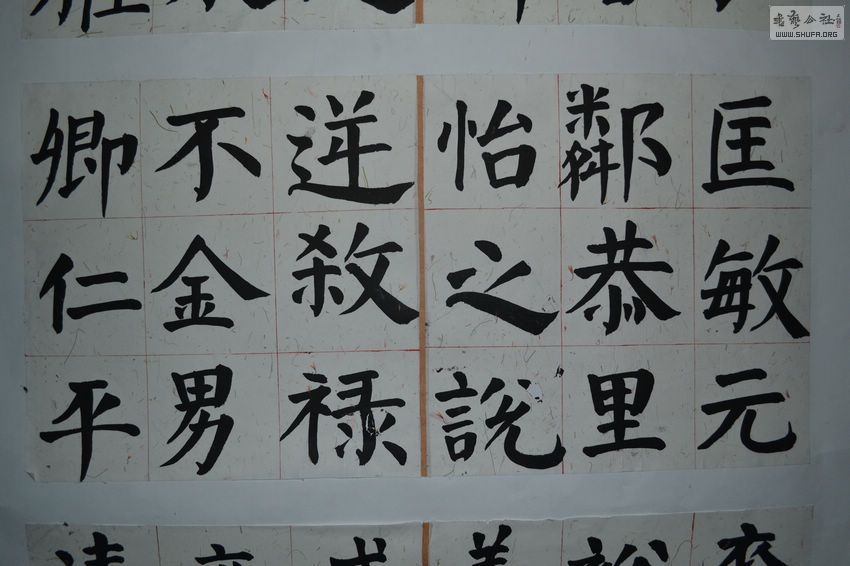 匡敏元
鄰恭里
怡之説
逆殺禄
不金男
卿仁平
書藝公社
WWW.SHUFA.ORG